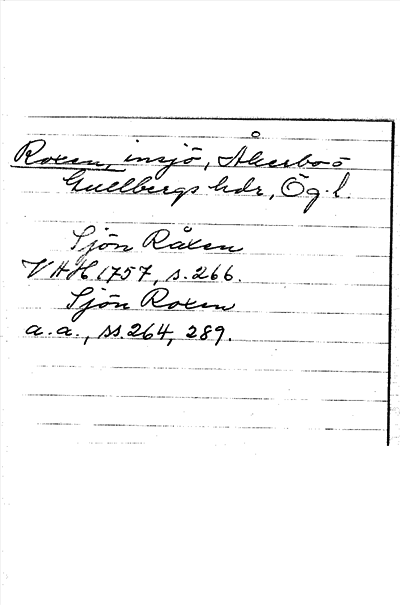 Roxen, insjö, Åkerbo o
Gullbergs hdr, Ög. l.
Sjön Råxen
VAH 1757, s. 266.
Sjön Roxen
a. a., ss. 264, 289.